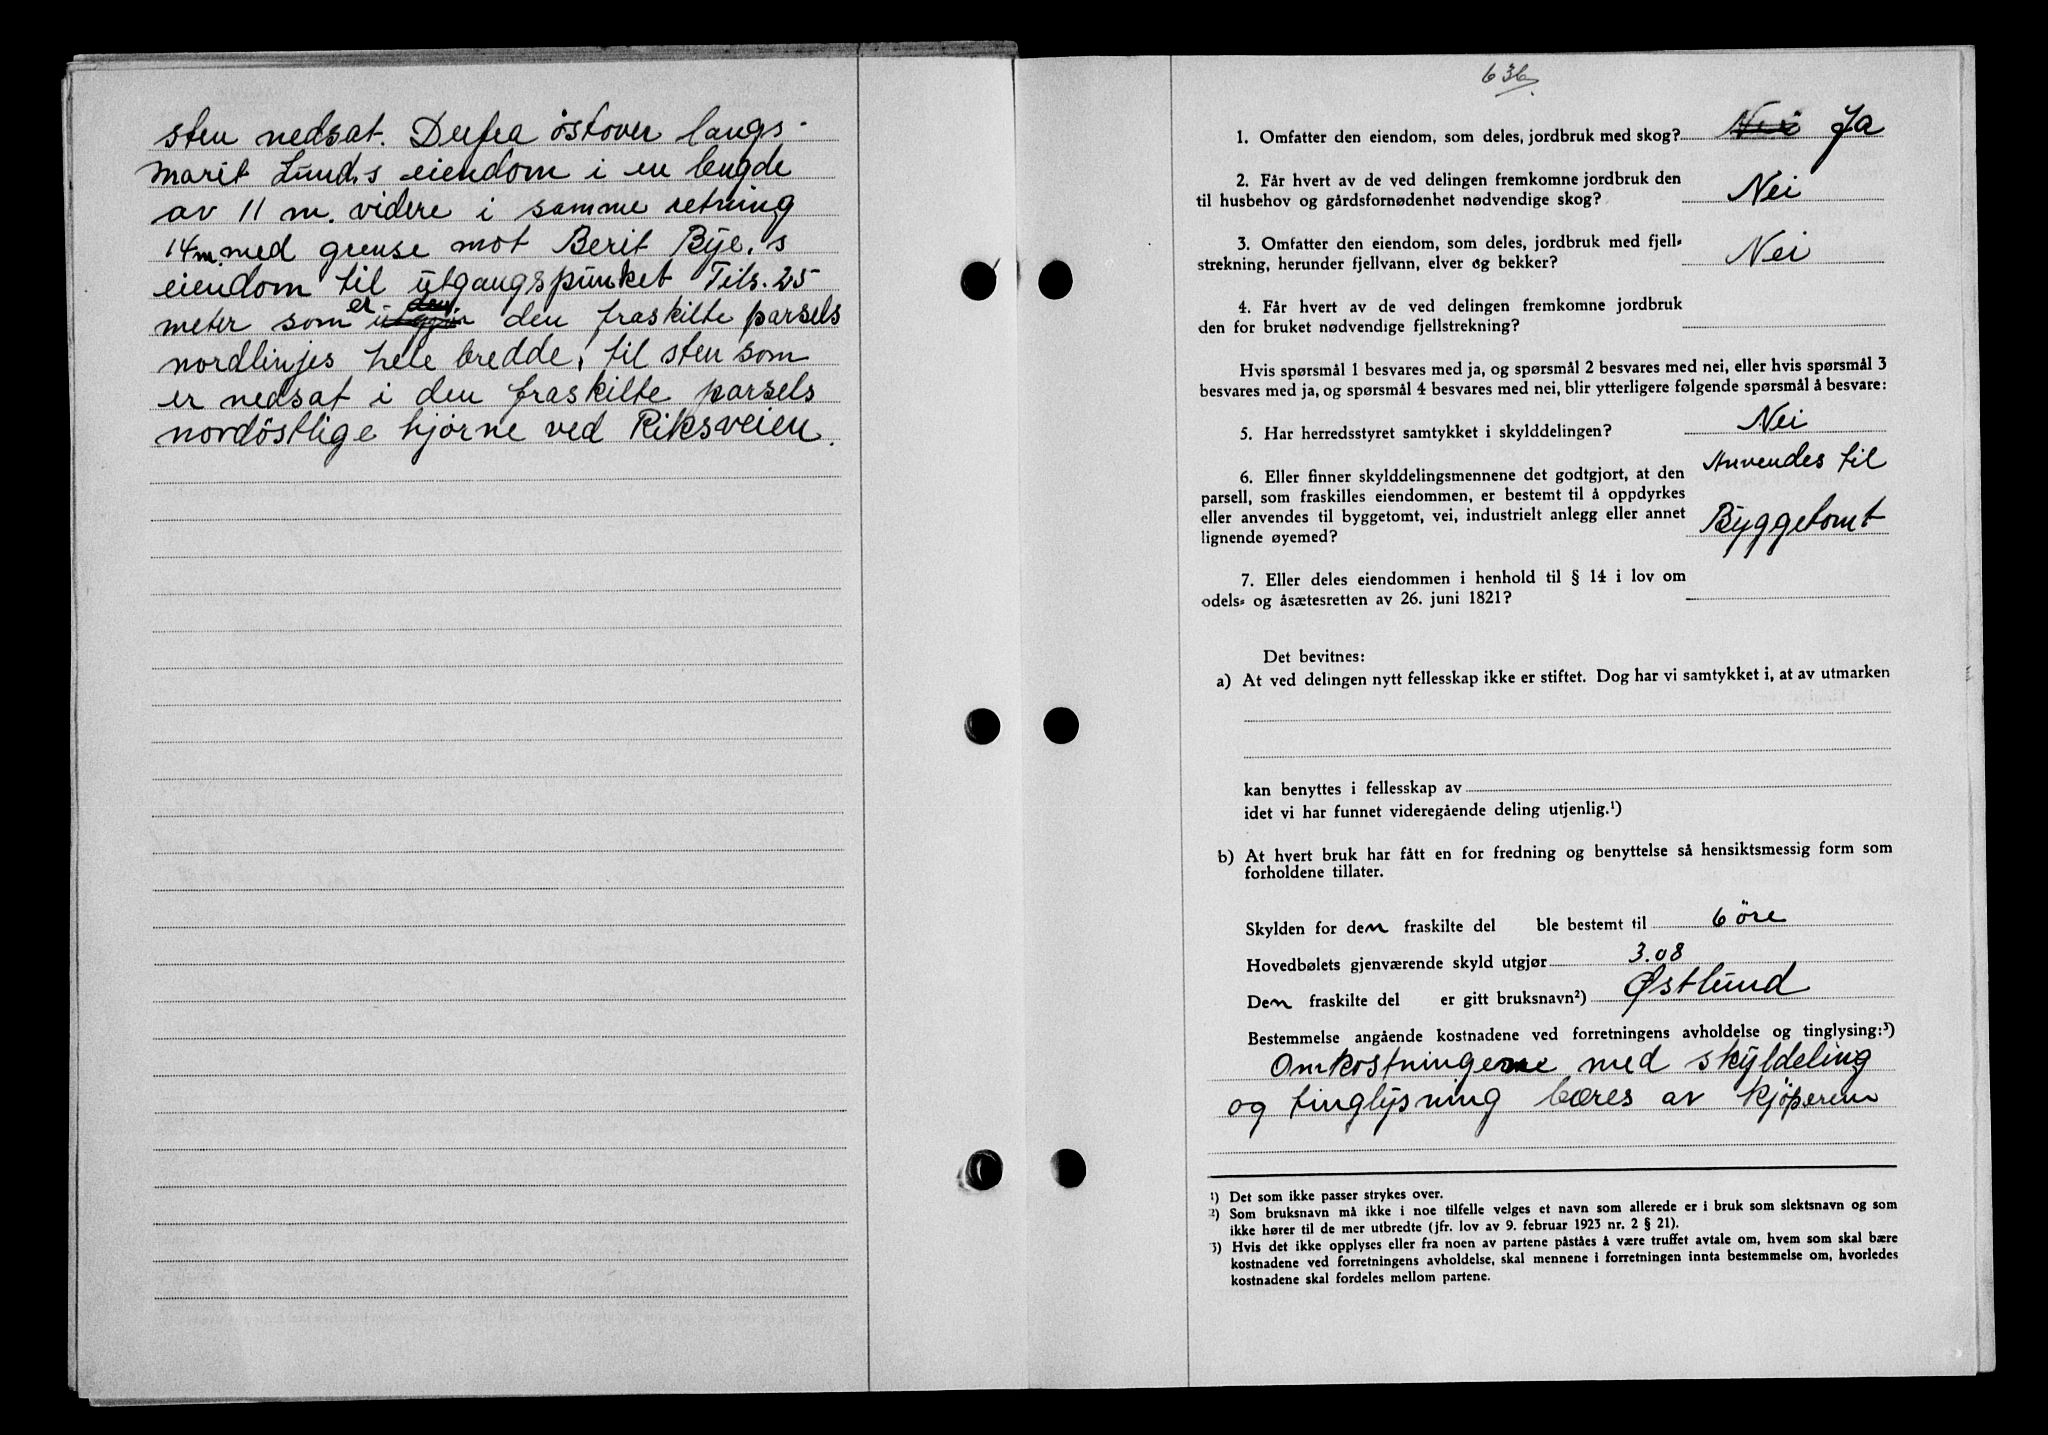 sten nedsat. Derfra östover langs
Marit Lund,s eiendom i en lengde
av 11 m. videre i samme retning
14 m. med grense mot Berit Bye,s
eiendom til utgangspunket Tils. 25
meter som er den den fraskilte parsels
nordlinjes hele bredde, til sten som
er nedsat i den fraskilte parsels
nordöstlige hjörne ved Riksveien.
636
1. Omfatter den eiendom, som deles, jordbruk med skog? Nei Ja
2. Får hvert av de ved delingen fremkomne jordbruk den
til husbehov og gårdsfornødenhet nødvendige skog? Nei
3. Omfatter den eiendom, som deles, jordbruk med fjell-
strekning, herunder fjellvann, elver og bekker? Nei
4. Får hvert av de ved delingen fremkomne jordbruk
den for bruket nødvendige fjellstrekning?
Hvis spørsmål 1 besvares med ja, og spørsmål 2 besvares med nei, eller hvis spørsmål 3
besvares med ja, og spørsmål 4 besvares med nei, blir ytterligere følgende spørsmål å besvare:
5. Har herredsstyret samtykket i skylddelingen? Nei
6. Eller finner skylddelingsmennene det godtgjort, at den Anvendes til
parsell, som fraskilles eiendommen, er bestemt til å oppdyrkes
eller anvendes til byggetomt, vei, industrielt anlegg eller annet Byggetomt
lignende øyemed?
7. Eller deles eiendommen i henhold til § 14 i lov om
odels- og åsætesretten av 26. juni 1821?
Det bevitnes:
a) At ved delingen nytt fellesskap ikke er stiftet. Dog har vi samtykket i, at av utmarken
kan benyttes i fellesskap av
idet vi har funnet videregående deling utjenlig.¹)
b) At hvert bruk har fått en for fredning og benyttelse så hensiktsmessig form som
forholdene tillater.
Skylden for den fraskilte del ble bestemt til 6 öre
Hovedbølets gjenværende skyld utgjør 3.08
Den fraskilte del er gitt bruksnavn²) Østlund
Bestemmelse angående kostnadene ved forretningens avholdelse og tinglysing:³)
Omkostningerne med skyldeling
og tinglysning bæres av kjöperen
¹) Det som ikke passer strykes over.
²) Som bruksnavn må ikke i noe tilfelle velges et navn som allerede er i bruk som slektsnavn og som
ikke hører til de mer utbredte (jfr. lov av 9. februar 1923 nr. 2 § 21).
³) Hvis det ikke opplyses eller fra noen av partene påståes å være truffet avtale om, hvem som skal bære
kostnadene ved forretningens avholdelse, skal mennene i forretningen innta bestemmelse om, hvorledes
kostnadene skal fordeles mellom partene.